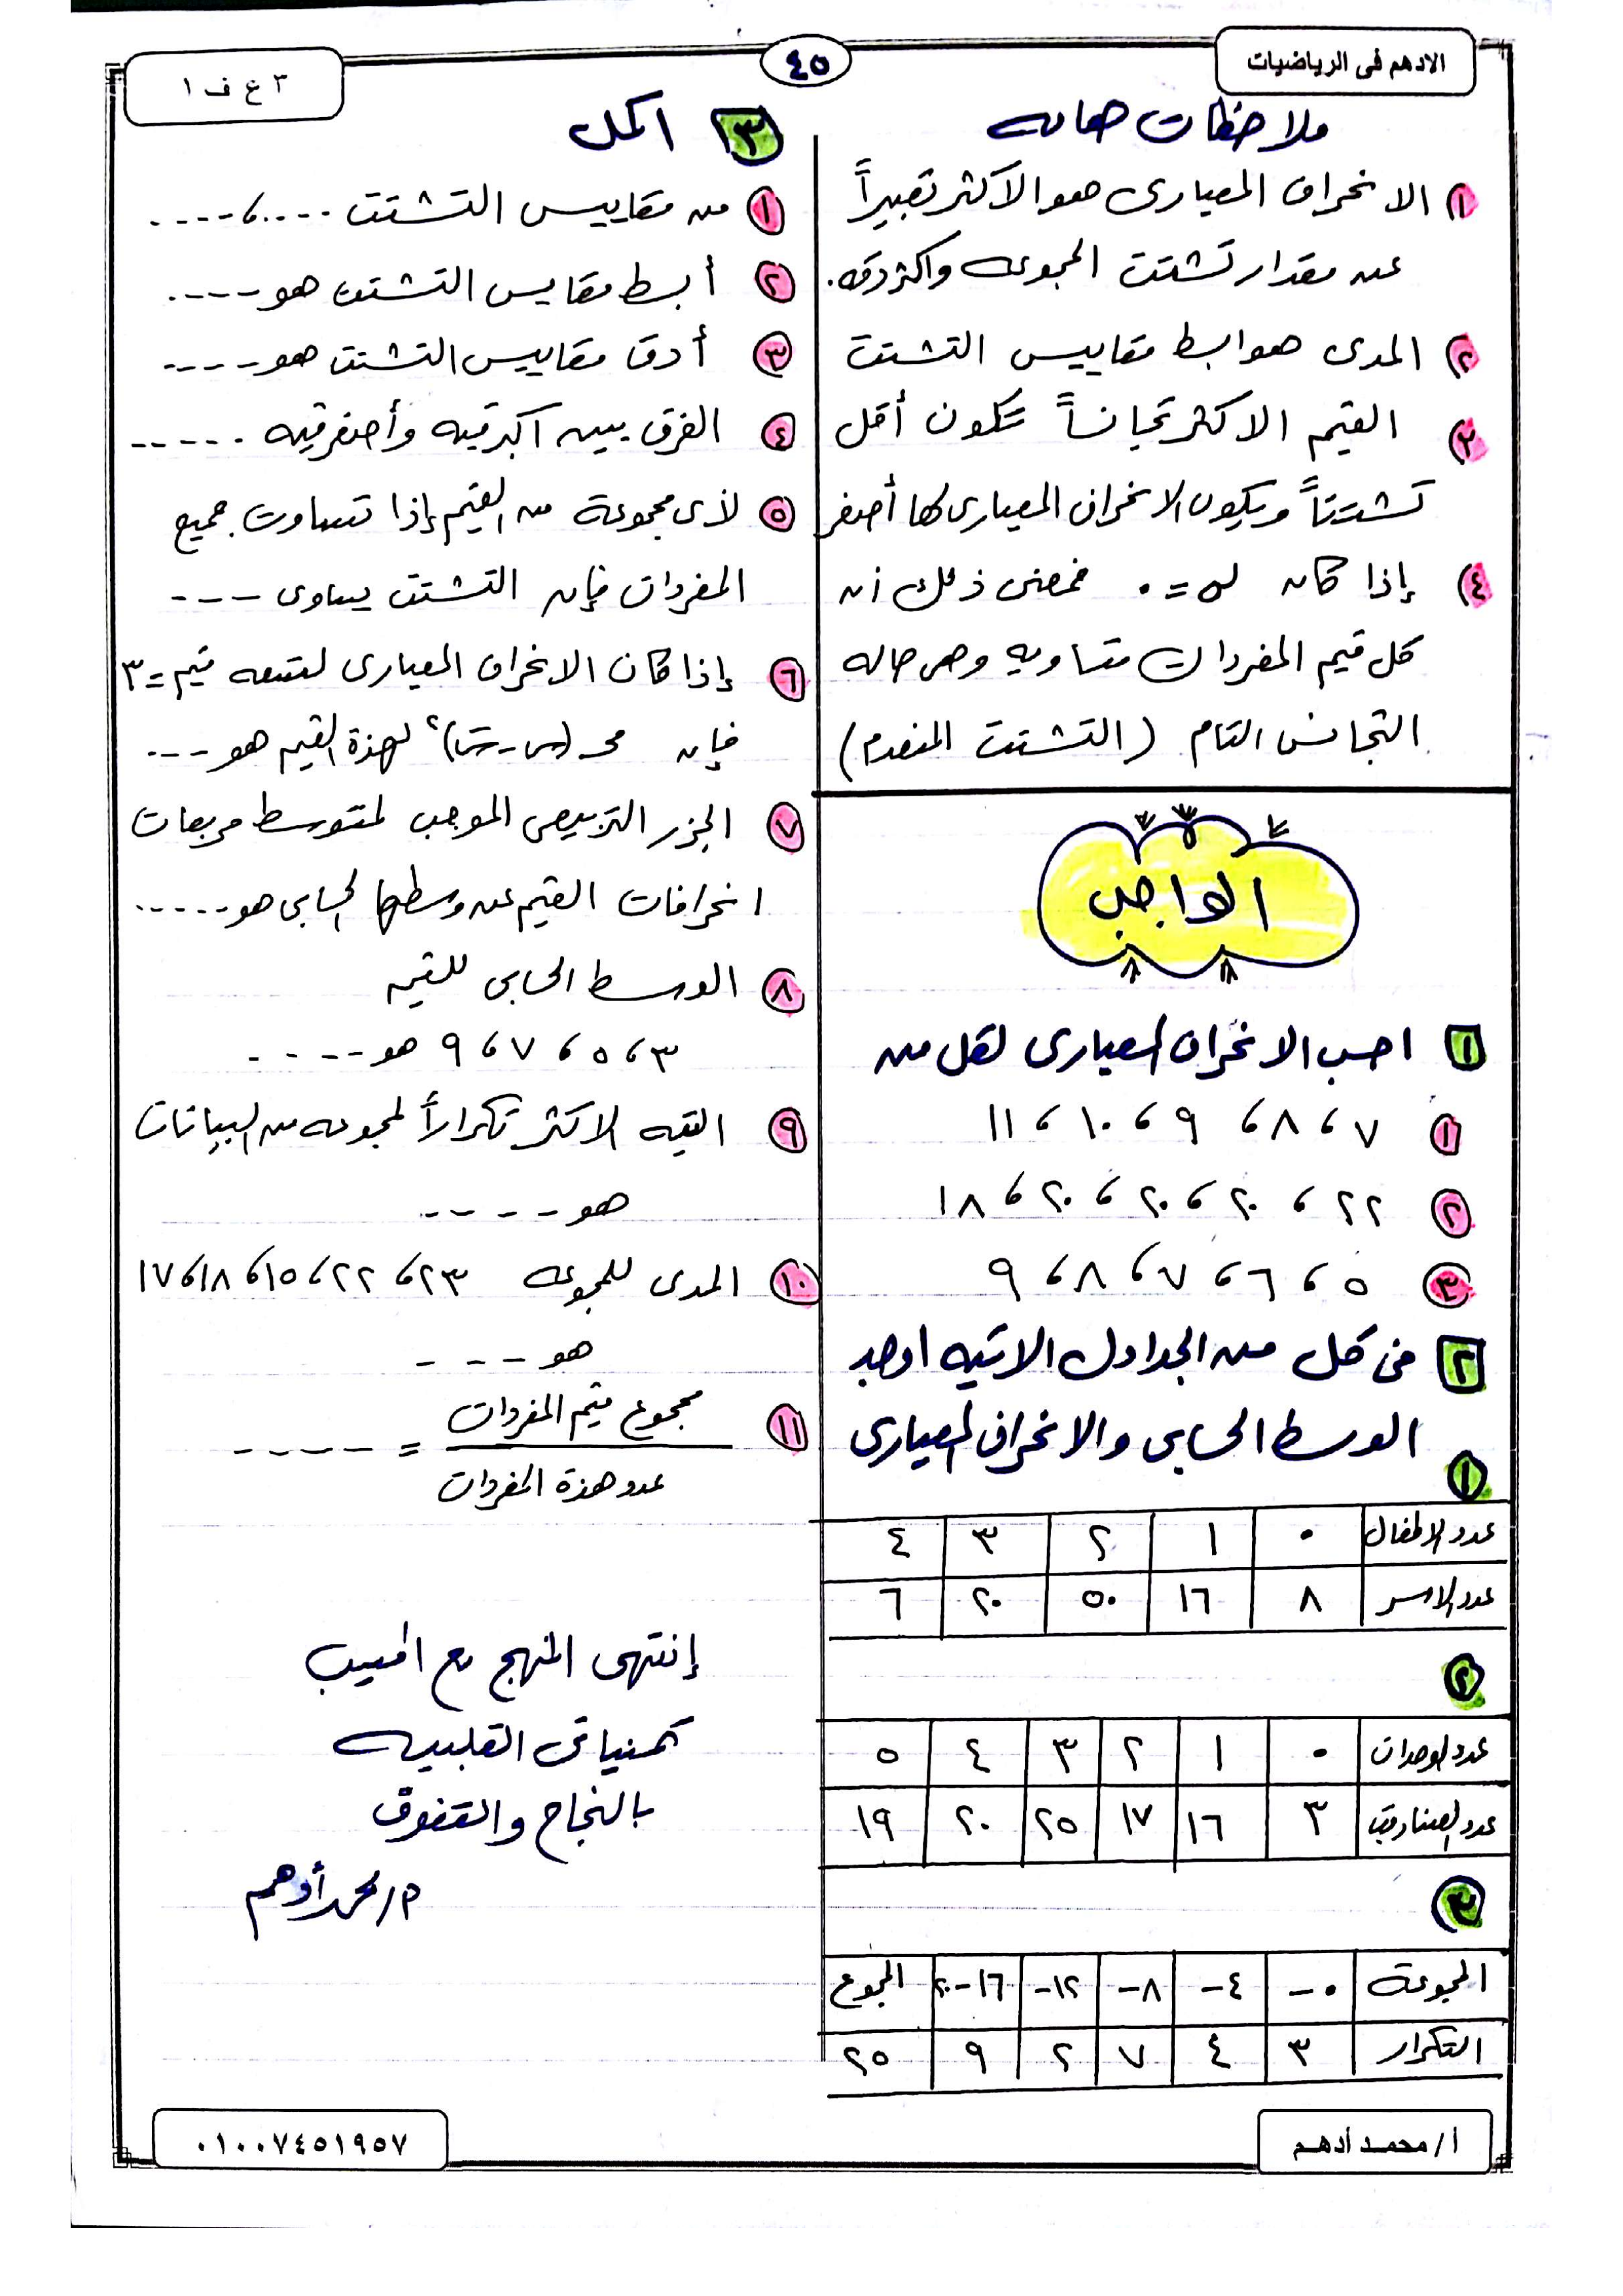 الادهم فى الرياضيات
٤٥
٣ ع ف ١
ملاحظات هامه
١) الانحراف المعيارى هو الأكثر تعبيراً
عن مقدار تشتت المجموعه واكثر دقه.
٢) المدى هو ابسط مقاييس التشتت
٣) القيم الاكثر تجانساً تكون أقل
تشتتاً ويكون الانحراف المعيارى لها أصغر
٤) إذا كان σ = ٠ فمعنى ذلك ان
كل قيم المفردات متساويه وهى حاله
التجانس التام (التشتت المنعدم)
الواجب
١ احسب الانحراف المعيارى لكل من
١ ٧ ، ٨ ، ٩ ، ١٠ ، ١١
٢ ٢٢ ، ٢٠ ، ٢٠ ، ٢٠ ، ١٨
٣ ٥ ، ٦ ، ٧ ، ٨ ، ٩
٢ فى كل من الجداول الاتيه اوجد
الوسط الحسابى والانحراف المعيارى
١
عدد الاطفال ٠ ١ ٢ ٣ ٤
عدد الاسر ٨ ١٦ ٥٠ ٢٠ ٦
٢
عدد الوحدات ٠ ١ ٢ ٣ ٤ ٥
عدد الصناديق ٣ ١٦ ١٧ ٢٥ ٢٠ ١٩
٣
المجموعة ٠- ٤- ٨- ١٢- ١٦-٢٠ المجموع
التكرار ٣ ٤ ٧ ٢ ٩ ٢٥
٣ اكمل
١ من مقاييس التشتت ---- ، ----
٢ أبسط مقاييس التشتت هو ----
٣ أدق مقاييس التشتت هو ----
٤ الفرق بين اكبر قيمه وأصغر قيمه -----
٥ لأى مجموعة من القيم إذا تساوت جميع
المفردات فإن التشتت يساوى ---
٦ إذا كان الانحراف المعيارى لتسعه قيم = ٣
فإن مجـ (س - س̄)٢ لهذة القيم هو ---
٧ الجزر التربيعى الموجب لمتوسط مربعات
انحرافات القيم عن وسطها الحسابى هو -----
٨ الوسط الحسابى للقيم
٣ ، ٥ ، ٧ ، ٩ هو ----
٩ القيمه الاكثر تكراراً لمجموعه من البيانات
هو ----
١٠ المدى للمجموعه ٢٣ ، ٢٢ ، ١٥ ، ١٨ ، ١٧
هو ---
١١ مجموع قيم المفردات
= ----
عدد هذة المفردات
إنتهى المنهج مع اطيب
تمنياتى القلبيه
بالنجاح والتفوق
م/محمد أدهم
أ/ محمـد أدهـم
٠١٠٠٧٤٥١٩٥٧